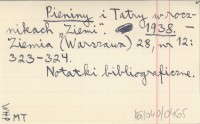 Pieniny i Tatry w rocz-
nikach „Ziemi". 1938. –
Ziemia (Warszawa) 28, nr 12:
323-324.
Notatki bibliograficzne.
MT